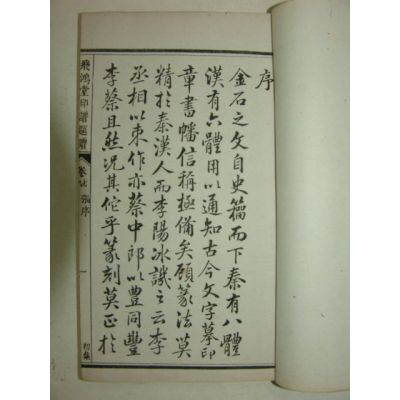 序
金石之文自史籀而下秦有八體
漢有六體用以通知古今文字摹印
章書幡信稱極備矣顧篆法莫
精於秦漢人而李陽冰譏之云李
丞相以束作亦蔡中郎以豊同豐
李蔡且然况其佗乎篆刻莫正於
飛鴻堂印譜
序
一
初集